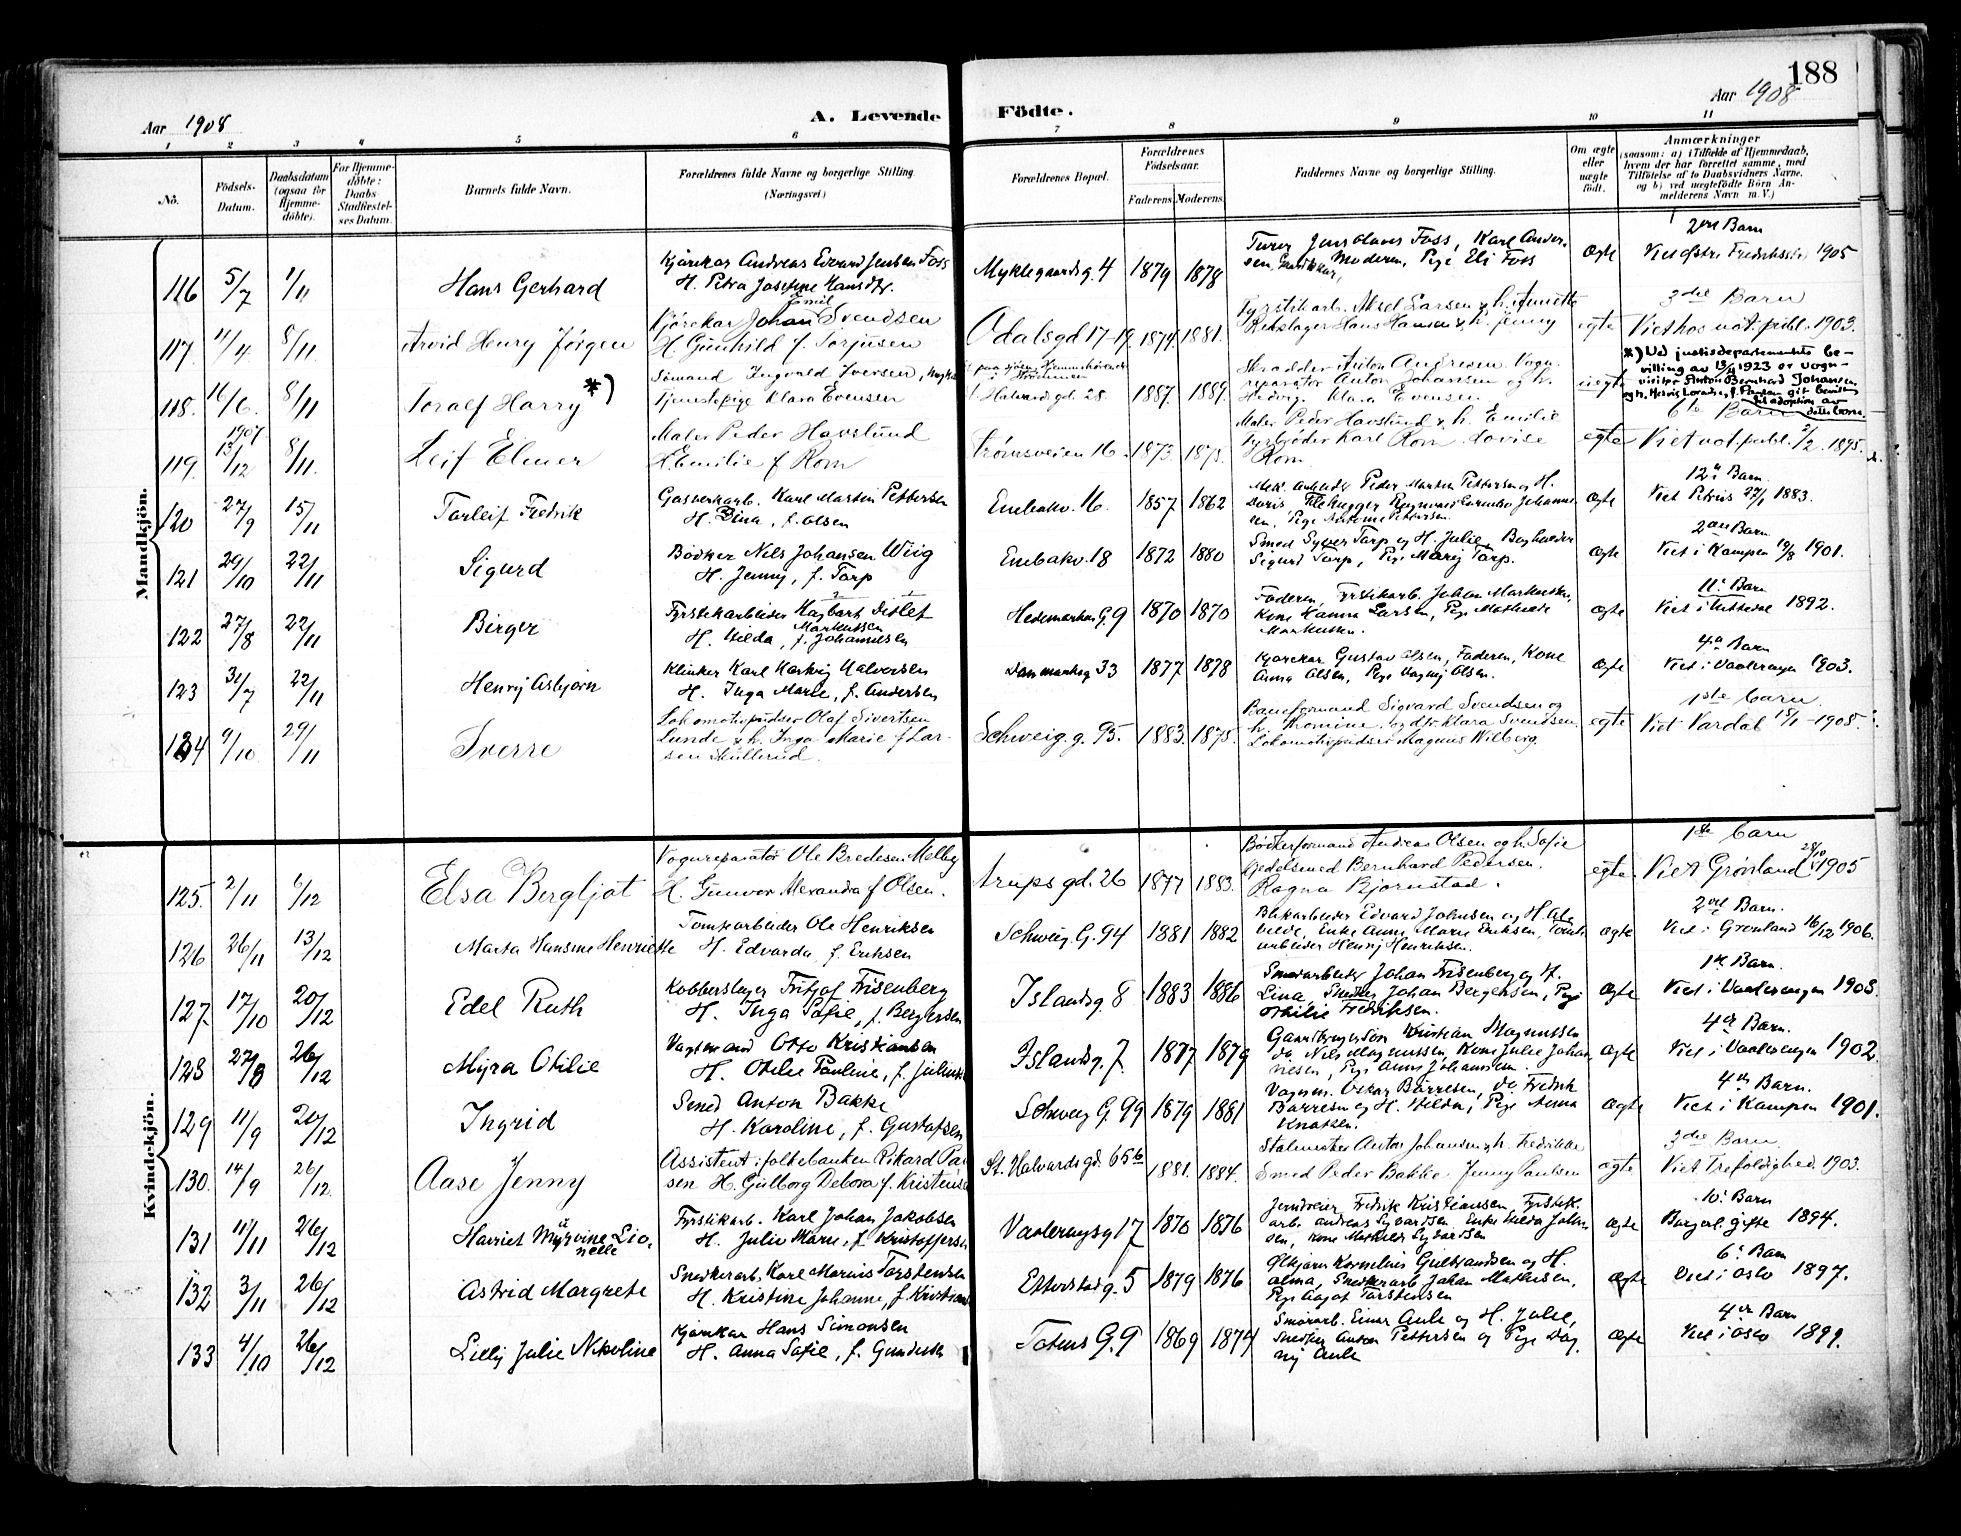 188
Aar 1908
A. Levende Födte.
Aar 1908
1 2 3 4 5 6 7 8 9 10 11
No.
Födsels-Datum.
Daabsdatum (ogsaa för Hjemme-döbte).
For Hjemme-döbte: Daabs Stadfæstel-ses Datum.
Barnets fulde Navn.
Forældrenes fulde Navne og borgerlige Stilling.
(Næringsvei.)
Forældrenes Bopæl.
Forældrenes Födselsaar.
Faderens Moderens
Faddernes Navne og borgerlige Stilling.
Om ægte eller uægte födt.
Anmærkninger
(saasom: a) i Tilfælde af Hjemmedaab, hvem der har forrettet samme, med Tilföielse af to Daabsvidners Navne, og b) ved uægtefödte Börn An-melderens Navn m.V.)
Mandkjön.
116 5/7 1/11 Hans Gerhard
Kjørekar Andreas Edvard Jensen Foss
H. Petra Josefine Hansdtr.
Myklegaardsg. 4 1879 1878
Jens Olaves Foss, Karl Ander-
sen, Moderen, Pige Eli Foss
ægte
2det Barn
1905
117. 11/4. 8/11 Arvid Henry Jörgen
Kjörekar Johan Emil Svendsen
H. Gunhild f. Torjusen
Odalsgd 17-19 1874. 1881.
Fyrstikarb. Aksel Larsen & h. Anette
Rebslager Hans Hansen & h. Jenny
egte
3die Barn
Viet hos not. publ. 1903.
118. 16/6. 8/11 Toralf Harry *)
Sömand Ingvald Iversen,
Tjenestepige Klara Evensen
St. Halvards gd. 28. 1887. 1889.
Skrædder Anton Andresen Vogn-
reparatør Anton Johansen og h.
Hedvig. Klara Evensen.
uegte
*) Ved justisdepartementets be-
villing av 13/11 1923 er vogn-
visitør Anton Bernhard Johansen
til adoption av
dette barn.
119. 1907 13/12 8/11. Leif Elmer
Maler Peder Havslund
H. Emilie f. Rom
Strømsveien 16. 1873. 1875.
Maler Peder Havslund & h. Emilie
Fyrbøder Karl Rom. Lovise
Rom
egte
6te Barn
Viet not. publ. 2/2. 1895.
120 27/9 15/11 Torleif Fredrik
Gasverkarb. Karl Martin Pettersen
H. Dina, f. Olsen
Enebakv. 16. 1857 1862
Mek. Arbeide Peder Martin Pettersen og H.
Doris Johanne-
sen, Pige Antone Pettersen.
ægte
12te Barn
Viet Petrus 27/1 1883.
121 29/10 22/11 Sigurd
Bødker Nils Johansen Wiig
H. Jenny, f. Tarp
Enebakv. 18 1872 1880
Smed Syver Tarp og H. Julie, Bogholder
Sigurd Tarp, Pige Marie Tarp.
ægte
2det Barn
Viet i Kampen 19/8 1901.
122 27/8 22/11 Birger
Fyrstikarbeider Hagbart Ditlef
Markussen
H. Hilda, f. Johannesen
Hedemarkens G. 9 1870 1870
Faderen, Fyrstikarb. Johan Markussen,
Kone Hanna Larsen, Pige Mathilde
Markussen.
ægte
11te Barn
Viet i 1892.
123 31/7 22/11 Henry Asbjørn
Klinker Karl Hartvig Halvorsen
H. Inga Marie, f. Andersen
Danmarksg 33 1877 1878
Kjørekar Gustav Olsen, Faderen, Kone
Anna Olsen, Pige Dagny Olsen.
ægte
4de Barn
Viet i Vaalerengen 1903.
124 9/10 29/11 Sverre
Lokomotivpudser Olaf Sivertsen
Lunde & h. Inga Marie f. Lar-
sen Skullerud.
Schweig. g. 95. 1883. 1875.
Baneformand Sigvard Svendsen og
h. Thomine. Ugdtr. Klara Svendsen
Lokomotivpudser Magnus Wilberg.
egte
1ste barn
Viet Vardal 15/1-1908.
Kvindekjön.
125. 2/11 6/12 Elsa Bergljot
Vognreparatør Ole Bredesen Melby
H. Gunvor Alexandra f. Olsen.
Arups gd. 26 1877 1883.
Bødkerformand Andreas Olsen og h. Sofie
Gjedelsmed Bernhard Pedersen.
Ragna Bjørnstad.
egte
1ste barn
Viet Grønland 28/10 1905
126 26/11 13/12 Marta Hansine Henriette
Tomtearbeider Ole Henriksen
H. Edvarda, f. Eriksen
Schweig. G. 94 1881 1882
Blikarbeider Edvard Johnsen og H. Al-
vilde, Enke Anne Marie Eriksen, Tomt-
arbeider Henry Henriksen.
ægte
2det Barn.
Viet i Grønland 16/12 1906.
127. 17/10 20/12 Edel Ruth
Kobberslager Fritjof Frisenberg
H. Inga Sofie, f. Bergersen
Islandsg. 8 1883 1886
Smørarbeider Johan Frisenberg og H.
Lina, Snedker Johan Bergersen, Pige
Othilie Fredriksen.
ægte
1ste Barn.
Viet i Vaalerengen 1908.
128 27/8 26/12 Myra Otilie
Vagtmand Otto Kristiansen
H. Otilie Pauline, f. Julius
Islandsg. 7. 1877 1879
Gaardbrugersøn Kristian Magnussen
do Nils Magnussen, Kone Julie Johan-
nesen, Pige Anna Johannesen.
ægte
4de Barn.
Viet i Vaalerengen 1902.
129 11/9 20/12 Ingrid
Smed Anton Bakke
H. Karoline, f. Gustafsen
Schweig G. 99 1879 1881
Vognm. Oskar Børresen, do Fredrik
Børresen og H. Hilda, Pige Anna
Knutsen.
ægte
4de Barn.
Viet i Kampen 1901.
130. 14/9 26/12. Aase Jenny
Assistent i folkebanken Rikard Pa-
sen H. Gulborg Debora f. Kristense
St. Halvards gd. 65b 1881. 1884.
Stalmester Anton Johansen & h. Fredrikke
Smed Peder Bakke. Jenny Paulsen
egte
3die Barn.
Viet Trefoldighed. 1903.
131 11/11 26/12 Harriet Myrvine Lio-
nelle
Fyrstikarb. Karl Johan Jakobsen
H. Julie Marie, f. Kristoffersen
Vaalerengsg 17 1870 1876
Jerndreier Fredrik Kristianssen, Fyrstik-
arb. Andreas Syvertsen, Enke Hilda Johan-
sen, Kone Mathilde Syvertsen
ægte
10de Barn
Borgerl. gifte 1894.
132 3/11 26/12 Astrid Margrete
Snedkerarb. Karl Marius Torstensen
H. Kristine Johanne, f. Kristians
Etterstadg. 5 1879 1876
Ølkjører Kornelius Gulbrandsen og H.
Alma, Snedkerarb Johan Mathisen,
Pige Aagot Torstensen
ægte
6te Barn
Viet i Oslo 1897.
133 4/10 26/12 Lilly Julie Nikoline
Kjørekar Hans Simonsen
H. Anna Sofie, f. Gundersen
Totens G. 9 1869 1874
Smørarb. Einar Aule og H. Julie,
Snedker Anton Pettersen og Pige Dag-
ny Aule
ægte
4de Barn
Viet i Oslo 1899.